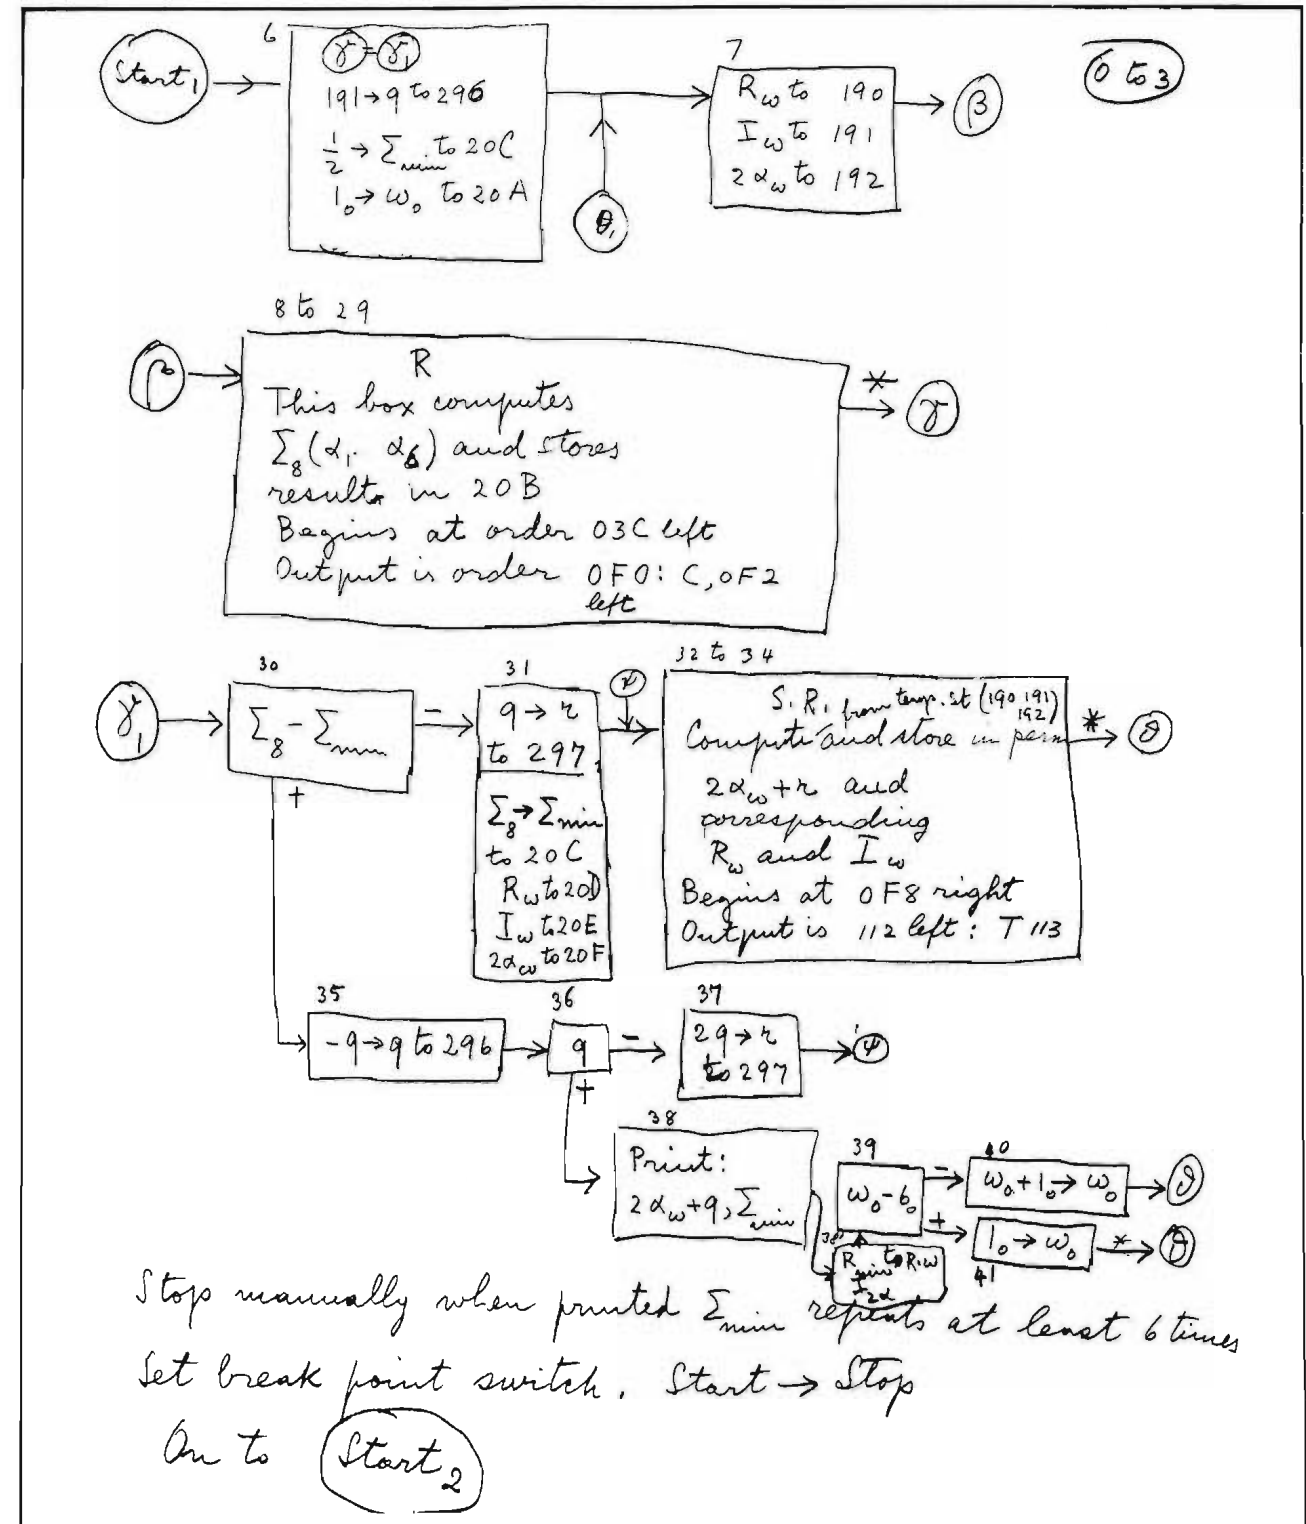 Start₁
6
γ = γ₁
191 → q to 296
½ → Σmin to 20C
1₀ → ω₀ to 20A
θ₁
7
Rω to 190
Iω to 191
2αω to 192
β
6 to 3
8 to 29
β
R
This box computes
Σ₈(α₁. α₆) and stores
result in 20B
Begins at order 03C left
Output is order 0F0: C, 0F2
left
*
γ
γ₁
30
Σ₈ − Σmin
−
+
31
q → r
to 297.
Σ₈ → Σmin
to 20C
Rω to 20D
Iω to 20E
2αω to 20F
ψ
32 to 34
S. R. from temp. st (190 191
192)
Compute and store in perm
2αω + r and
corresponding
Rω and Iω
Begins at 0F8 right
Output is 112 left: T 113
*
θ
35
−q → q to 296
36
q
−
+
37
2q → r
to 297
ψ
38
Print:
2αω + q, Σmin
38'
Rmin to Rω
I
2α
39
ω₀ − 6₀
−
+
40
ω₀ + 1₀ → ω₀
θ
1₀ → ω₀
41
*
θ
Stop manually when printed Σmin repeats at least 6 times
Set break point switch. Start → Stop
On to Start₂